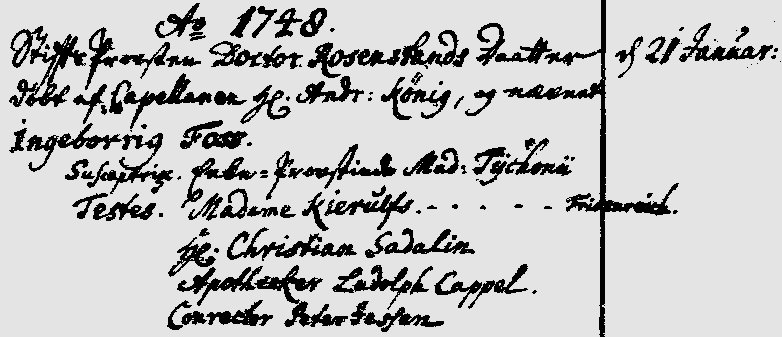 Aº 1748.
Stifts Provsten Doctor Rosenstands Daatter d 21 Januar:
döbt af Capellanen Hr. Andr: König, og nævnet
Ingeborrig Foss.
Susceptrix. Enke-Provstinde Mad: Tÿchonii
Testes. Madame Kierulfs. - - - - - Fridenreich.
Hr. Christian Sadalin
Apothecker Ludolph Cappel.
Conrector Peter Jessen